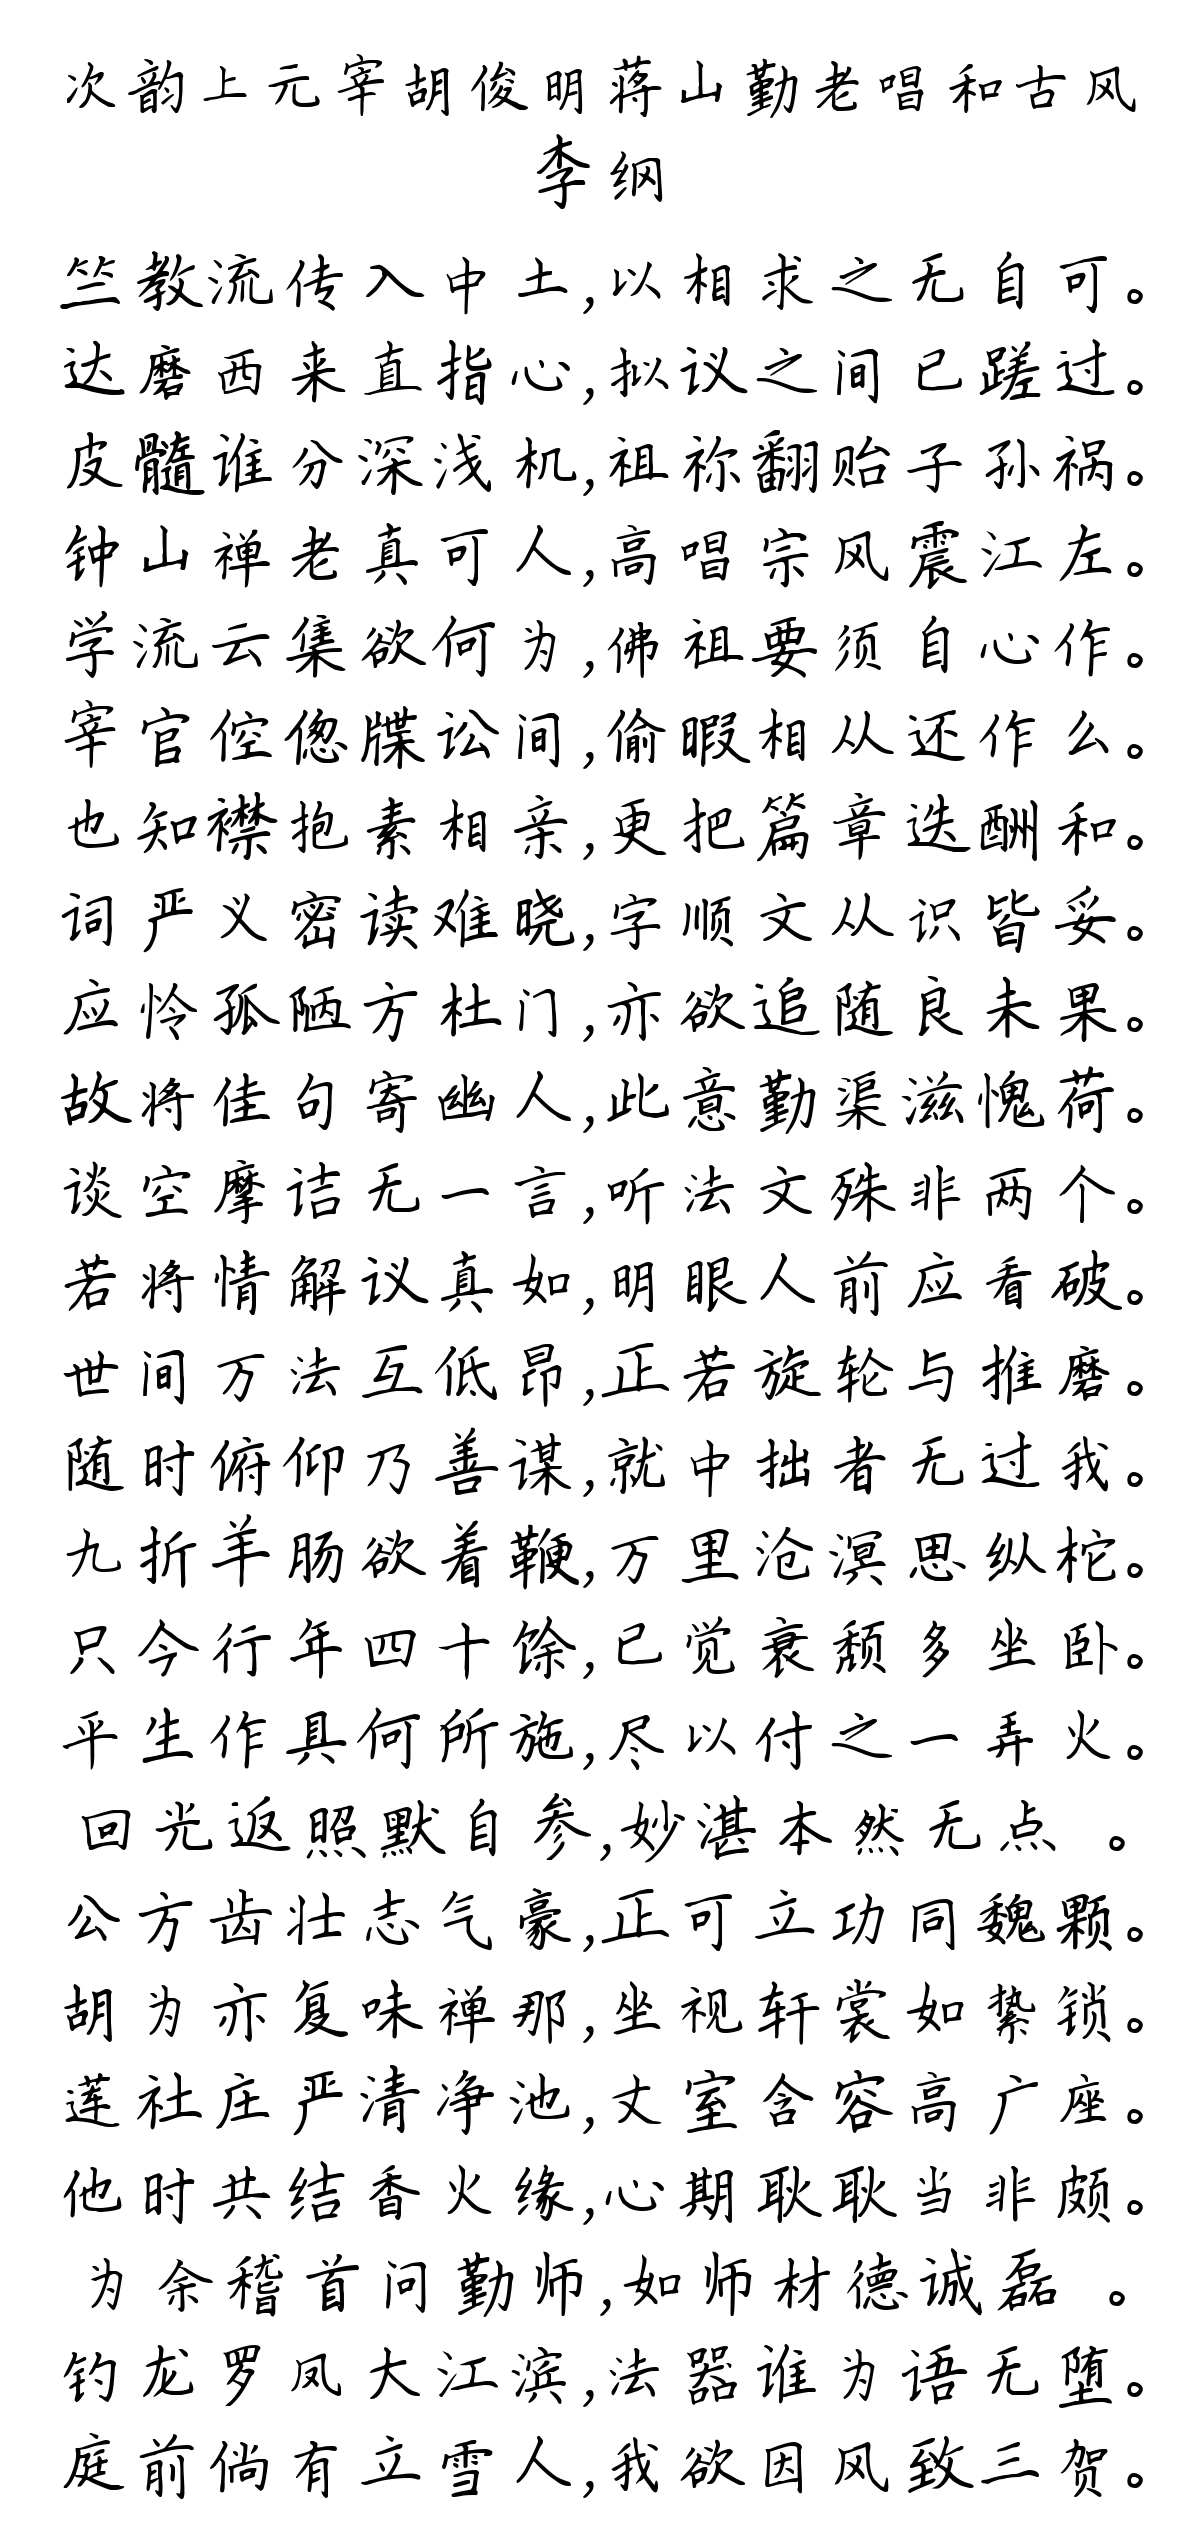 次韵上元宰胡俊明蒋山勤老唱和古风
李纲
竺教流传入中土,以相求之无自可。
达磨西来直指心,拟议之间已蹉过。
皮髓谁分深浅机,祖祢翻贻子孙祸。
钟山禅老真可人,高唱宗风震江左。
学流云集欲何为,佛祖要须自心作。
宰官倥偬牒讼间,偷暇相从还作么。
也知襟抱素相亲,更把篇章迭酬和。
词严义密读难晓,字顺文从识皆妥。
应怜孤陋方杜门,亦欲追随良未果。
故将佳句寄幽人,此意勤渠滋愧荷。
谈空摩诘无一言,听法文殊非两个。
若将情解议真如,明眼人前应看破。
世间万法互低昂,正若旋轮与推磨。
随时俯仰乃善谋,就中拙者无过我。
九折羊肠欲着鞭,万里沧溟思纵柁。
只今行年四十馀,已觉衰颓多坐卧。
平生作具何所施,尽以付之一弄火。
回光返照默自参,妙湛本然无点 。
公方齿壮志气豪,正可立功同魏颗。
胡为亦复味禅那,坐视轩裳如絷锁。
莲社庄严清净池,丈室含容高广座。
他时共结香火缘,心期耿耿当非颇。
为余稽首问勤师,如师材德诚磊 。
钓龙罗凤大江滨,法器谁为语无堕。
庭前倘有立雪人,我欲因风致三贺。